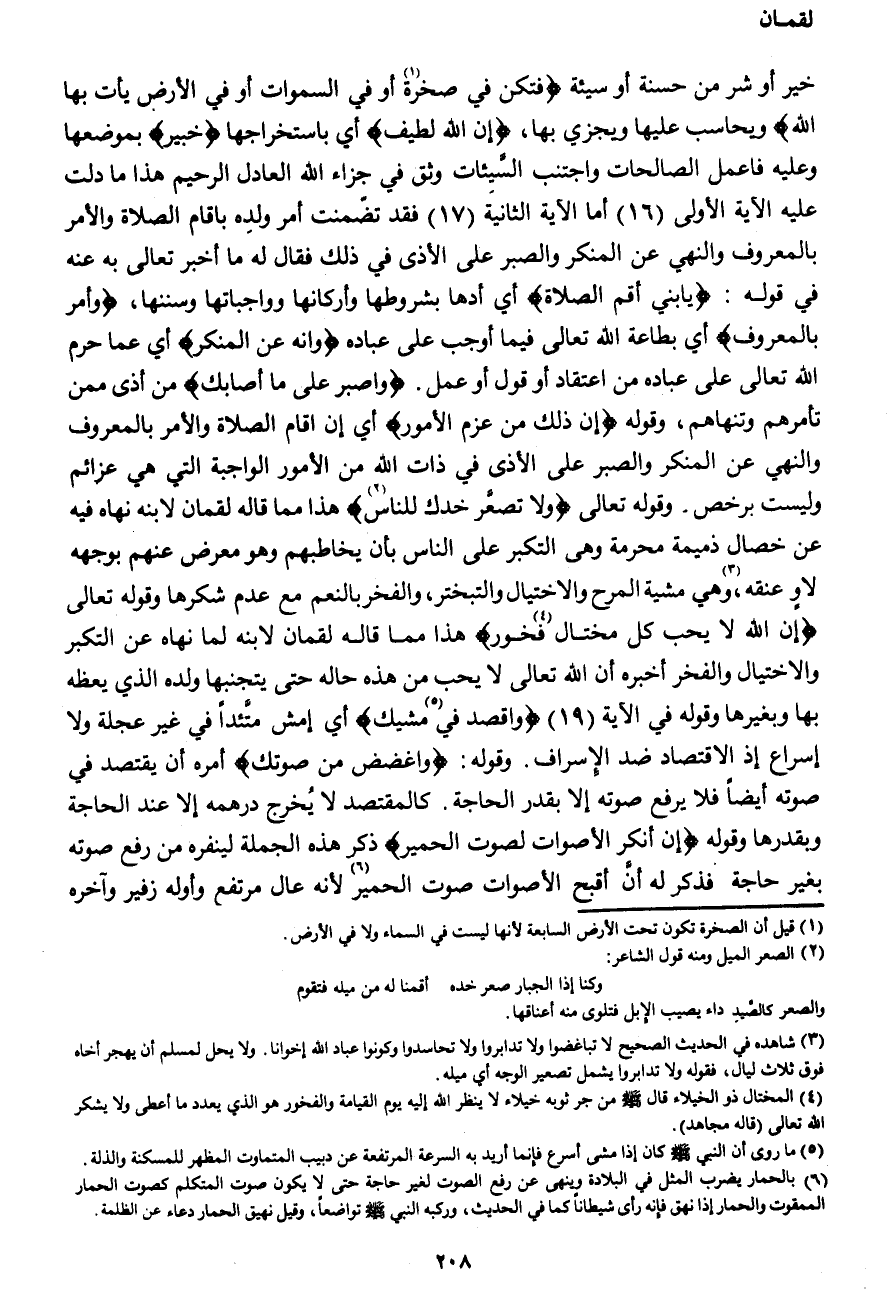 لقمـان
خير أو شر من حسنة أو سيئة ﴿فتكن في صخرة(١) أو في السموات أو في الأرض يأت بها
الله﴾ ويحاسب عليها ويجزي بها، ﴿إن الله لطيف﴾ أي باستخراجها ﴿خبير﴾ بموضعها
وعليه فاعمل الصالحات واجتنب السَّيئات وثق في جزاء الله العادل الرحيم هذا ما دلت
عليه الآية الأولى (١٦) أما الآية الثانية (١٧) فقد تضمنت أمر ولده باقام الصلاة والأمر
بالمعروف والنهي عن المنكر والصبر على الأذى في ذلك فقال له ما أخبر تعالى به عنه
في قولـه : ﴿يابني أقم الصلاة﴾ أي أدها بشروطها وأركانها وواجباتها وسننها، ﴿وأمر
بالمعروف﴾ أي بطاعة الله تعالى فيما أوجب على عباده ﴿وانه عن المنكر﴾ أي عما حرم
الله تعالى على عباده من اعتقاد أو قول أو عمل. ﴿واصبر على ما أصابك﴾ من أذى ممن
تأمرهم وتنهاهم، وقوله ﴿إن ذلك من عزم الأمور﴾ أي إن اقام الصلاة والأمر بالمعروف
والنهي عن المنكر والصبر على الأذى في ذات الله من الأمور الواجبة التي هي عزائم
وليست برخص. وقوله تعالى ﴿ولا تصعَّر خدك للناس(٢)﴾ هذا مما قاله لقمان لابنه نهاه فيه
عن خصال ذميمة محرمة وهى التكبر على الناس بأن يخاطبهم وهو معرض عنهم بوجهه
لاوٍ عنقه،(٣) وهي مشية المرح والاختيال والتبختر، والفخر بالنعم مع عدم شكرها وقوله تعالى
﴿إن الله لا يحب كل مختـال(٤) فخـور﴾ هذا ممـا قالـه لقمان لابنه لما نهاه عن التكبر
والاختيال والفخر أخبره أن الله تعالى لا يحب من هذه حاله حتى يتجنبها ولده الذي يعظه
بها وبغيرها وقوله في الآية (١٩) ﴿واقصد في(٥) مشيك﴾ أي إمش متَّئداً في غير عجلة ولا
إسراع إذ الاقتصاد ضد الإسراف. وقوله: ﴿واغضض من صوتك﴾ أمره أن يقتصد في
صوته أيضاً فلا يرفع صوته إلا بقدر الحاجة. كالمقتصد لا يُخرج درهمه إلا عند الحاجة
وبقدرها وقوله ﴿إن أنكر الأصوات لصوت الحمير﴾ ذكر هذه الجملة لينفره من رفع صوته
بغير حاجة فذكر له أنَّ أقبح الأصوات صوت الحمير(٦) لأنه عال مرتفع وأوله زفير وآخره
(١) قيل أن الصخرة تكون تحت الأرض السابعة لأنها ليست في السماء ولا في الأرض.
(٢) الصعر الميل ومنه قول الشاعر:
وكنا إذا الجبار صعر خده    أقمنا له من ميله فتقوم
والصعر كالصَّيدِ داء يصيب الإبل فتلوى منه أعناقها.
(٣) شاهده في الحديث الصحيح لا تباغضوا ولا تدابروا ولا تحاسدوا وكونوا عباد الله إخوانا. ولا يحل لمسلم أن يهجر أخاه
فوق ثلاث ليال، فقوله ولا تدابروا يشمل تصعير الوجه أي ميله.
(٤) المختال ذو الخيلاء قال ﷺ من جر ثوبه خيلاء لا ينظر الله إليه يوم القيامة والفخور هو الذي يعدد ما أعطى ولا يشكر
الله تعالى (قاله مجاهد).
(٥) ما روى أن النبي ﷺ كان إذا مشى أسرع فإنما أريد به السرعة المرتفعة عن دبيب المتماوت المظهر للمسكنة والذلة.
(٦) بالحمار يضرب المثل في البلادة وينهى عن رفع الصوت لغير حاجة حتى لا يكون صوت المتكلم كصوت الحمار
الممقوت والحمار إذا نهق فإنه رأى شيطاناً كما في الحديث، وركبه النبي ﷺ تواضعاً، وقيل نهيق الحمار دعاء عن الظلمة.
٢٠٨